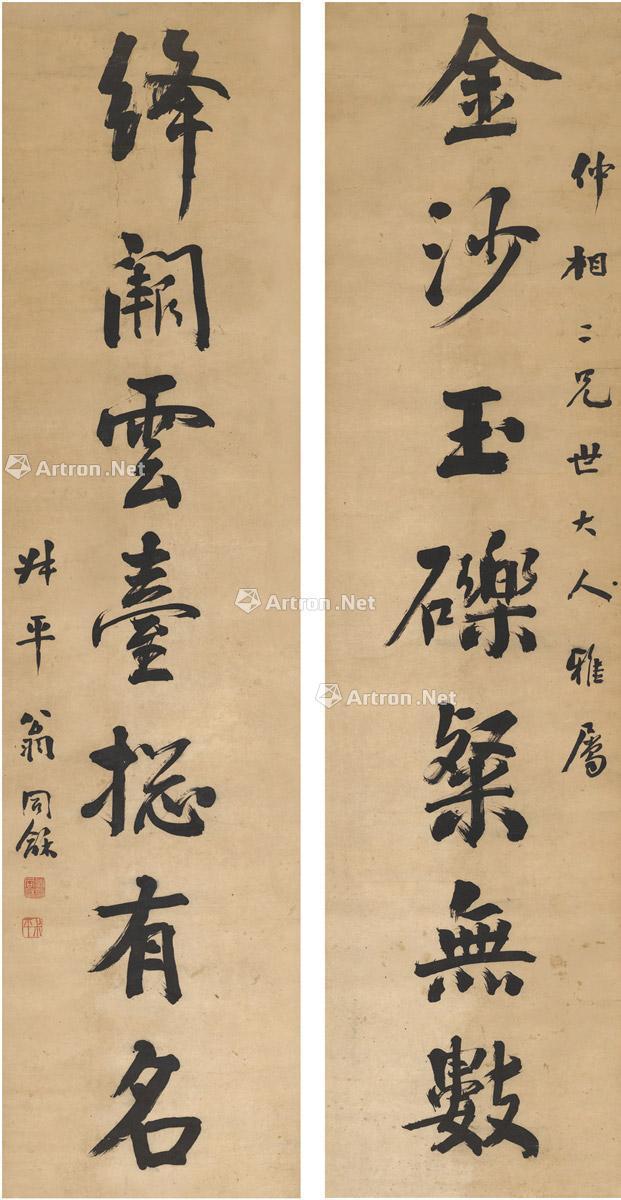 仲相二兄世大人雅屬
金沙玉礫粲無數
絳闕雲臺揔有名
叔平翁同龢
Artron.Net
Artron.Net
Artron.Net